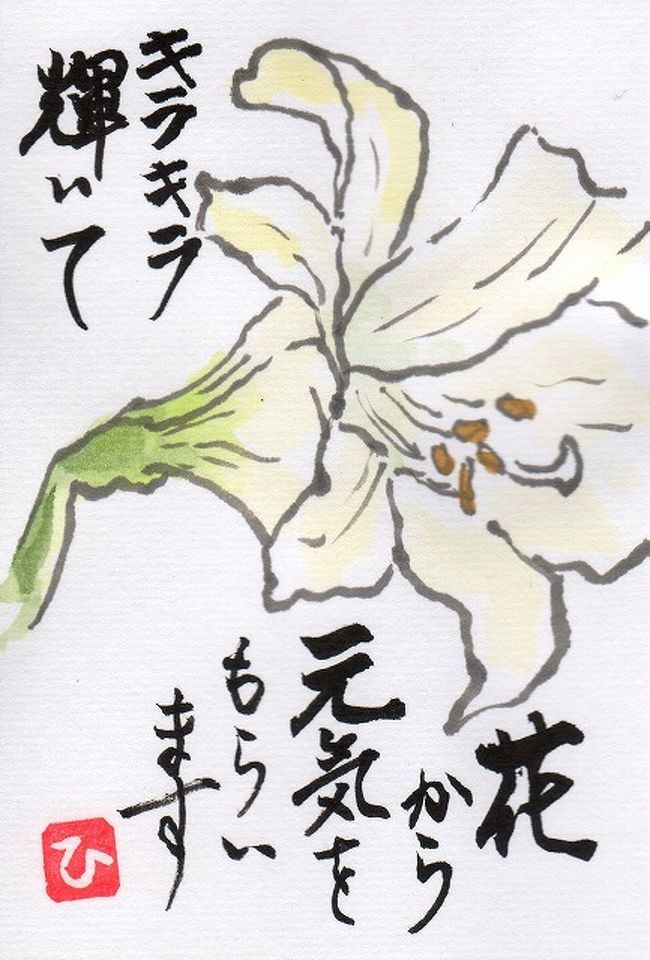 キラキラ
輝いて
花
から
元気を
もらい
ます
ひ